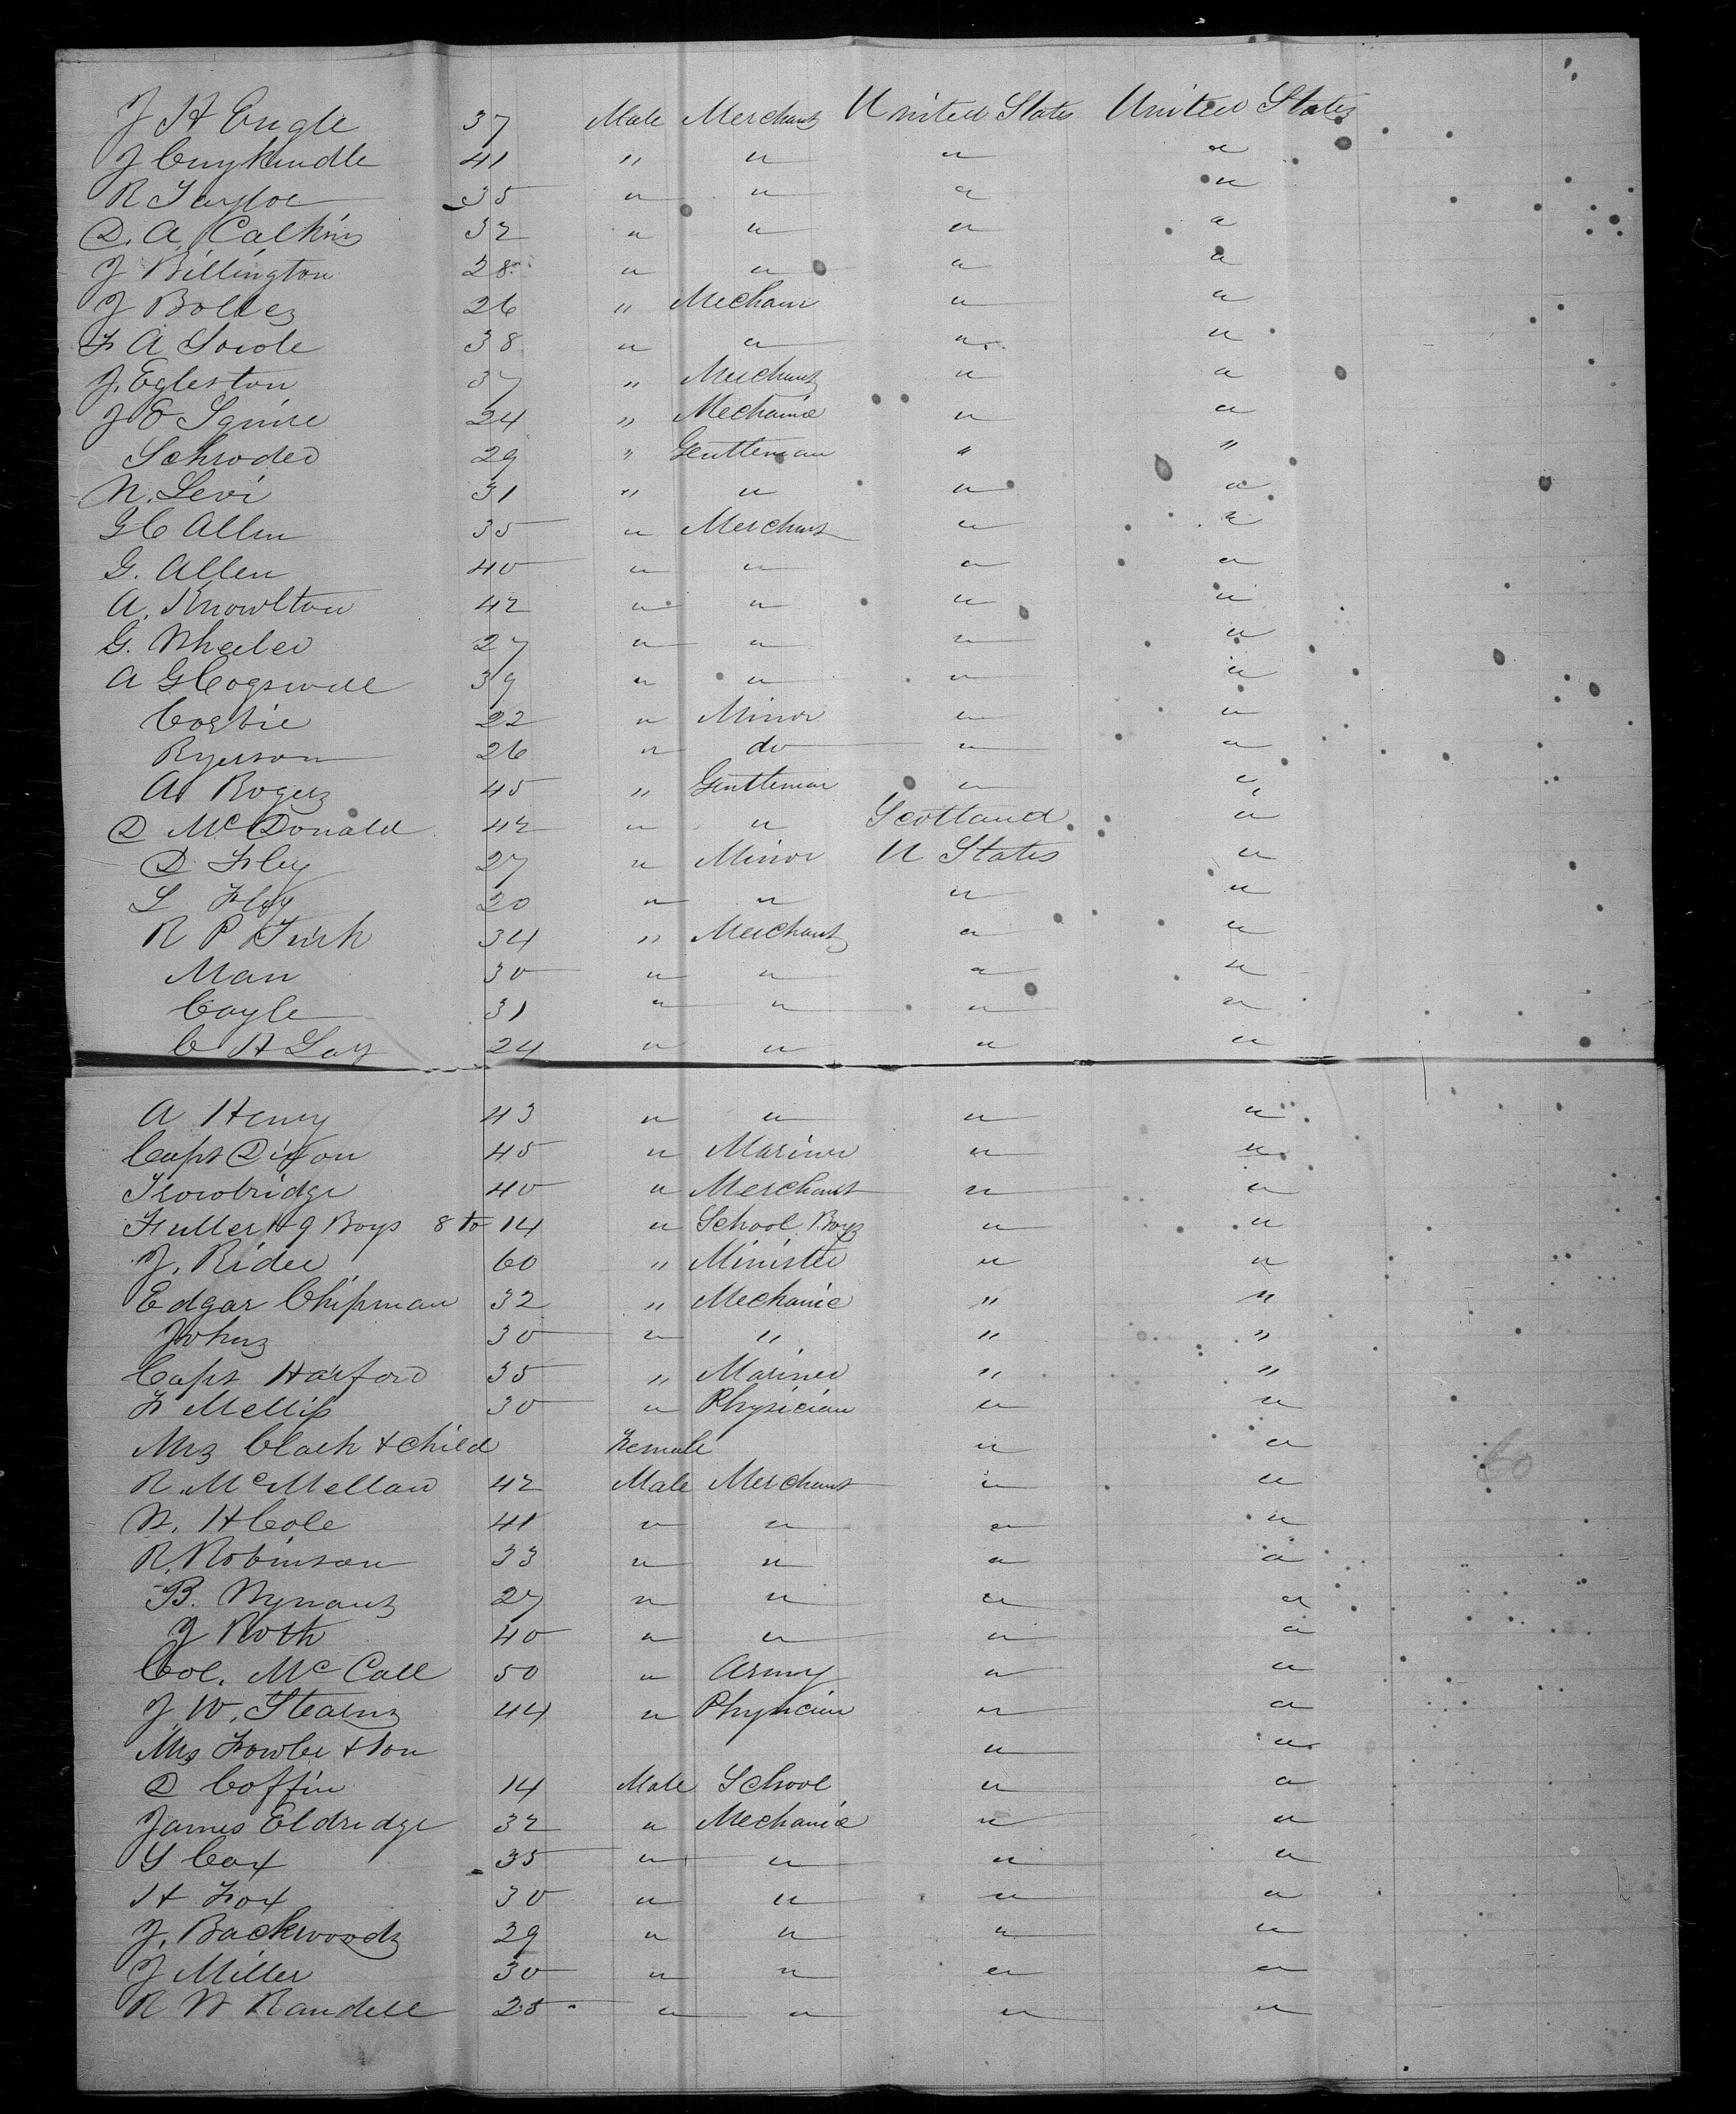 J H Engle 37 Male Merchant United States United States
J Cuykendle 41 " " " "
R Taylor 35 " " " "
D. A. Calkins 32 " " " "
J Billington 28 " " " "
J Bolles 26 " Mechanic " "
F A Sowle 38 " " " "
J. Egleston 37 " Merchant " "
J E Squire 24 " Mechanic " "
Schroder 29 " Gentleman " "
N. Levi 31 " " " "
G C Allen 35 " Merchant " "
G. Allen 40 " " " "
A. Knowlton 42 " " " "
G. Wheeler 27 " " " "
A G Cogswell 39 " " " "
22 " Minor " "
Ryerson 26 " do " "
A Rogers 45 " Gentleman " "
D McDonald 42 " " Scotland "
D Fley 27 " Minor U States "
L Fley 20 " " " "
R P 34 " Merchant " "
Man 30 " " " "
Coyle 31 " " " "
C H 24 " " " "
A Henry 43 " " " "
Capt Dixon 45 " Mariner " "
Trowbridge 40 " Merchant " "
Fuller & 9 Boys 8 to 14 " School Boys " "
J. Rider 60 " Minister " "
Edgar Chipman 32 " Mechanic " "
Johns 30 " " " "
Capt Harford 35 " Mariner " "
F Mellis 30 " Physician " "
Mrs Clark & child Female " "
R. McMellan 42 Male Merchant " "
W. H Cole 41 " " " "
R. Robinson 33 " " " "
B. Wynants 27 " " " "
J Roth 40 " " " "
Col. McCall 50 " Army " "
J. W. Stearns 44 " Physician " "
Mrs Fowler & Son " "
D Coffin 14 Male School " "
James Eldridge 32 " Mechanic " "
Y Cox 35 " " " "
H Fox 30 " " " "
J. Backwoods 29 " " " "
J Miller 30 " " " "
R W Randell 25 " " " "
60